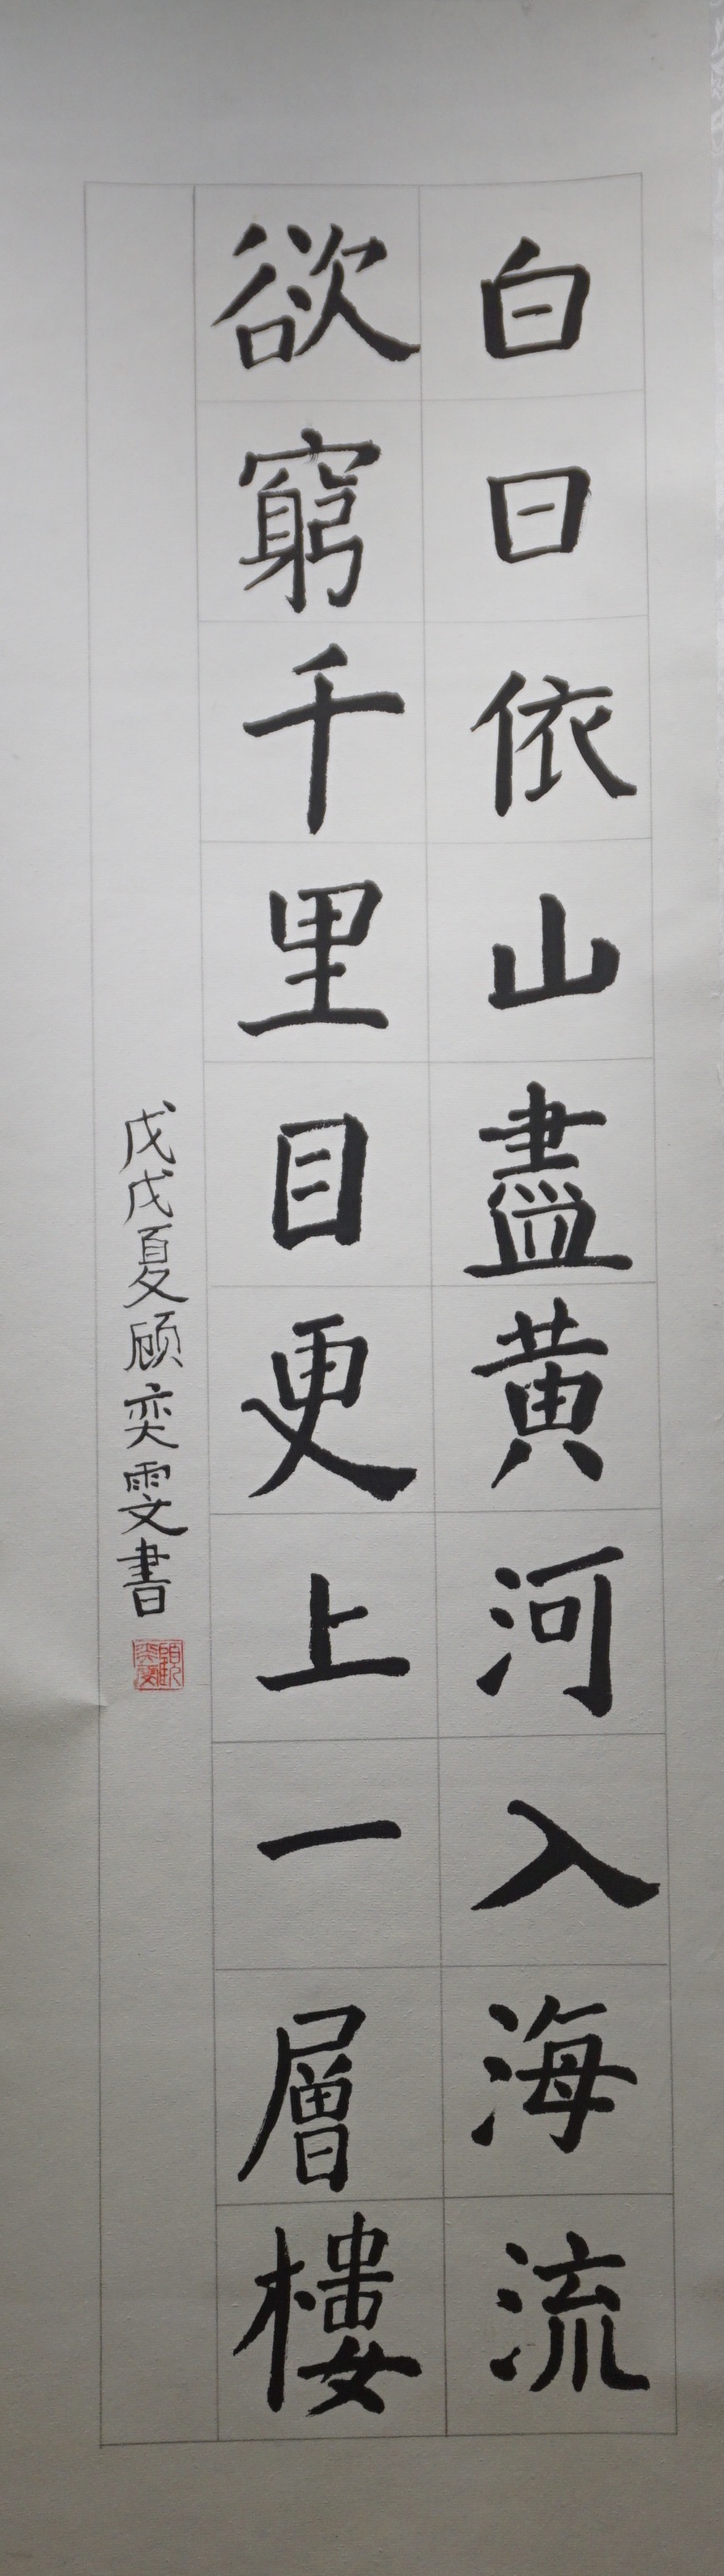 白日依山盡黄河入海流
欲窮千里目更上一層樓
戊戌夏顾奕雯書